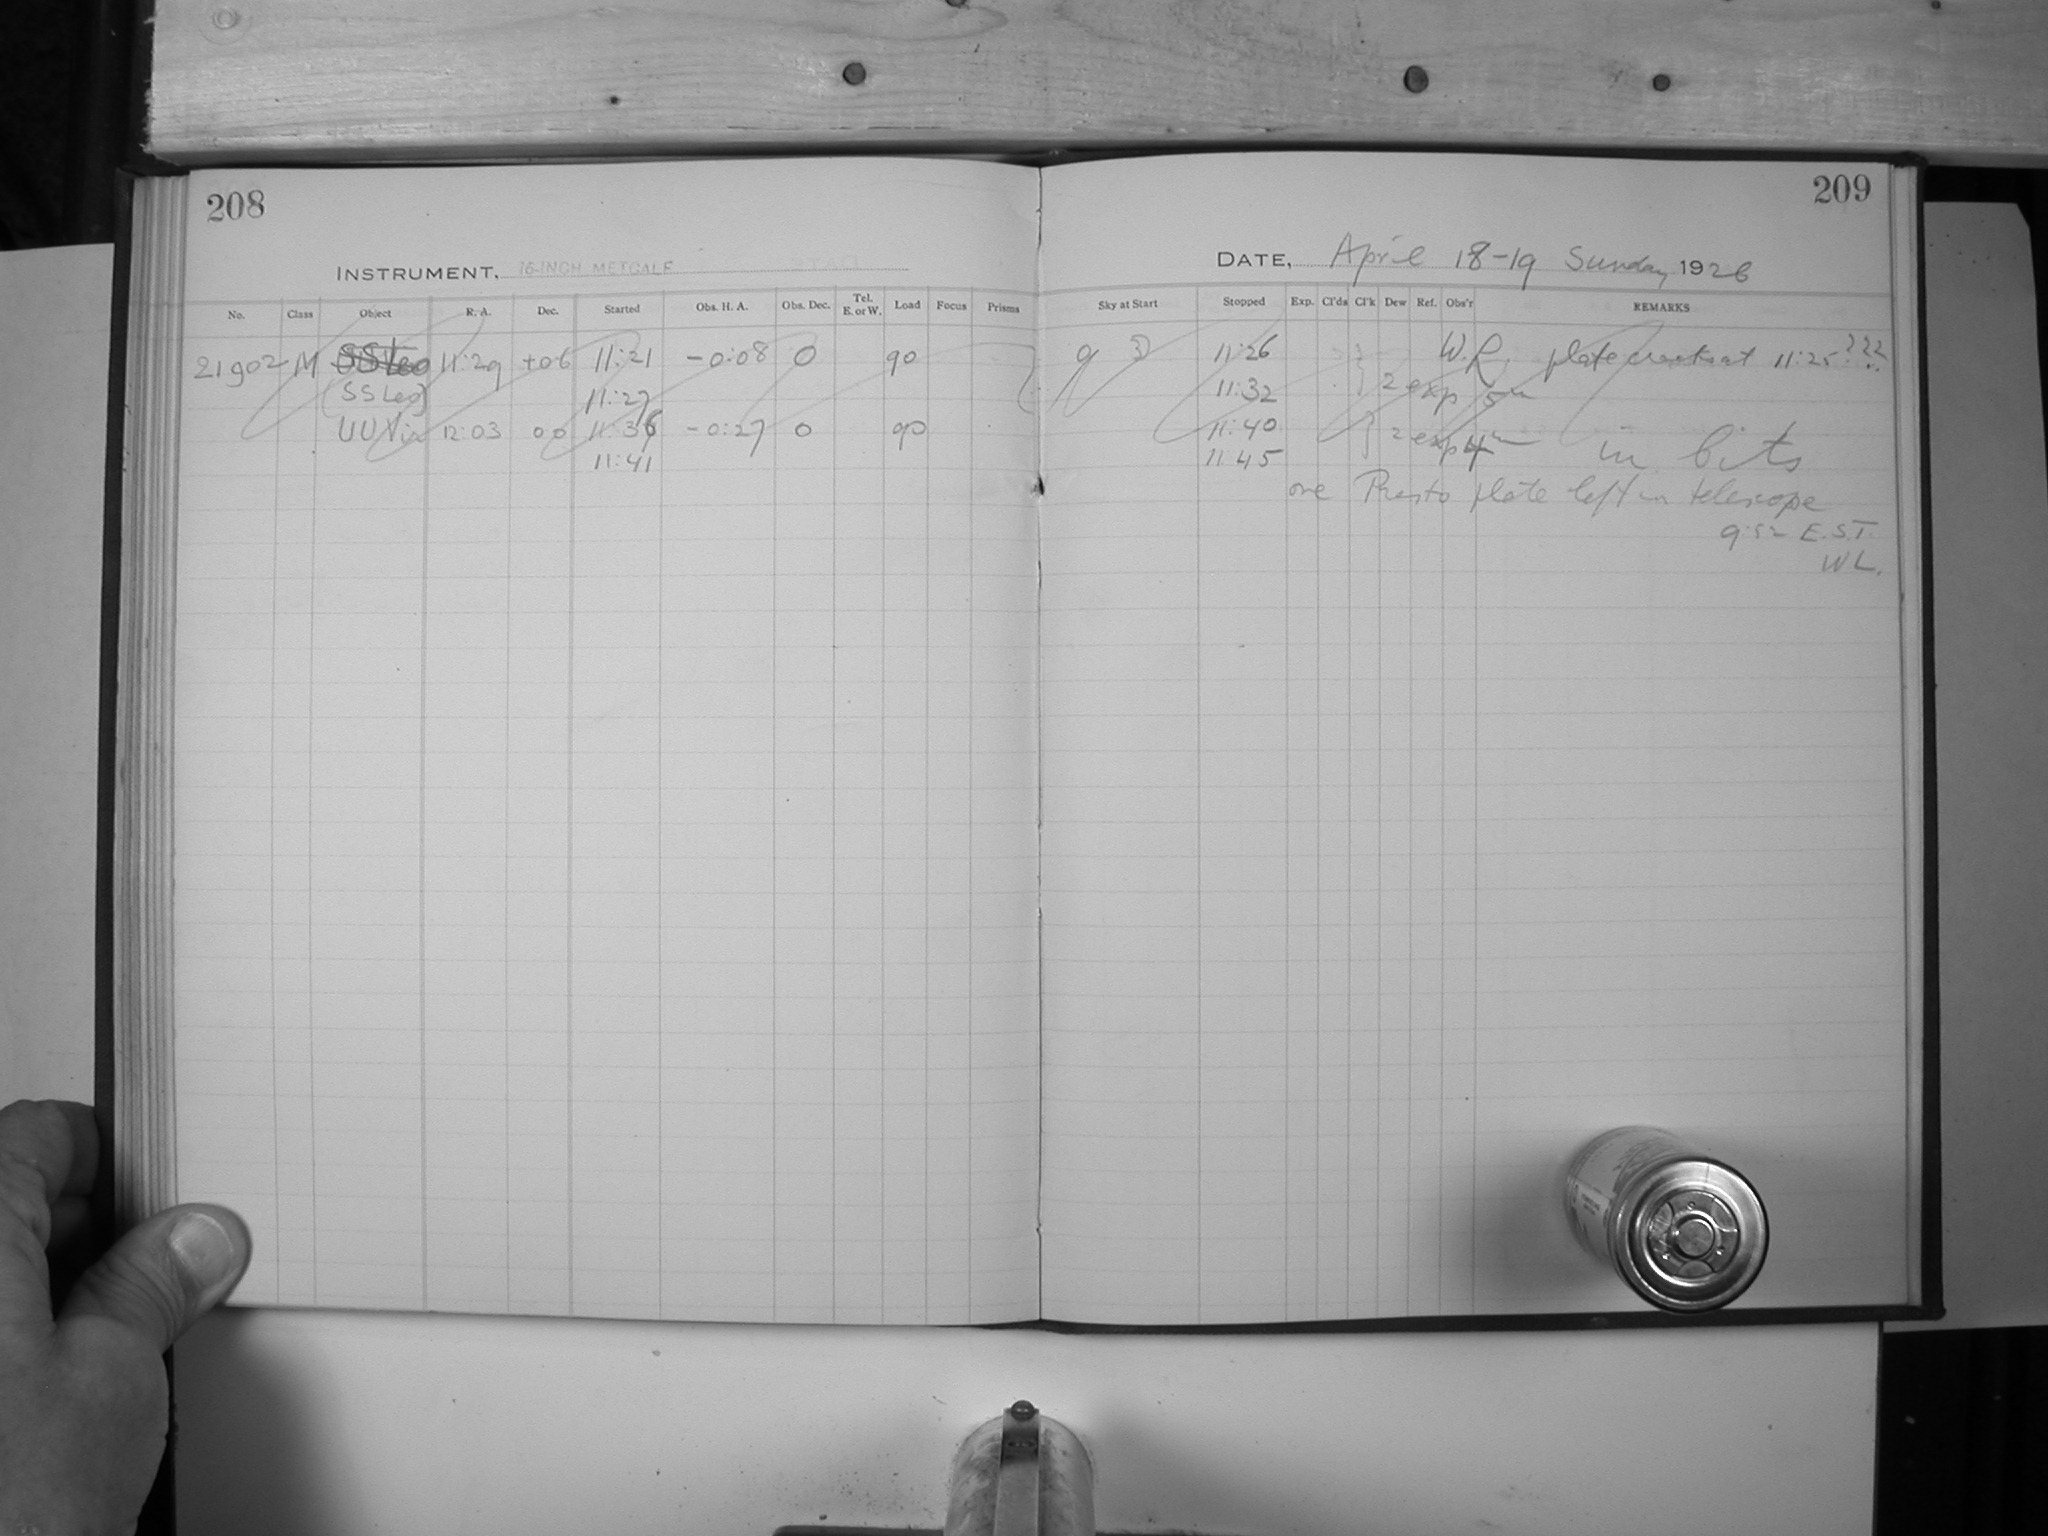 208
INSTRUMENT, 16-INCH METCALF
No. Class Object R. A. Dec. Started Obs. H. A. Obs. Dec. Tel. E. or W. Load Focus Prisms
21902 M SS Leo 11:29 +06 11:21 -0:08 0 90
(SS Leo) 11:27
UU Vir 12:03 00 11:36 -0:27 0 90
11:41
209
DATE, April 18-19 Sunday, 1926
Sky at Start Stopped Exp. Cl'ds Cl'k Dew Ref. Obs'r REMARKS
g 11:26 W.R. plate cracks at 11:25???
11:32 } 2 exp 5m
11:40 } 2 exp 4m in bits
11:45
one Presto plate left in telescope
9:52 E.S.T.
W L.